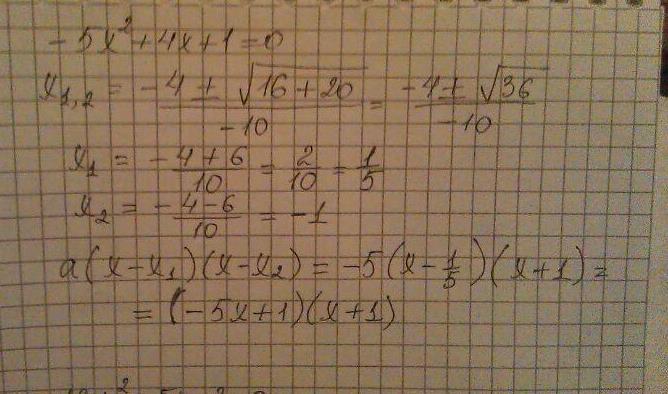 -5x²+4x+1=0
x₁,₂ = (-4 ± √(16+20))/(-10) = (-4 ± √36)/(-10)
x₁ = (-4+6)/10 = 2/10 = 1/5
x₂ = (-4-6)/10 = -1
a(x-x₁)(x-x₂) = -5(x-1/5)(x+1) =
= (-5x+1)(x+1)